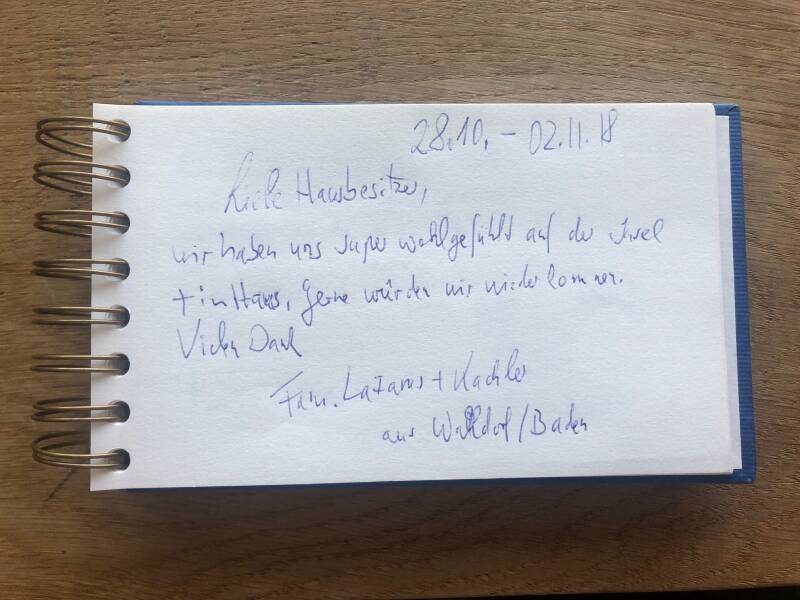 28.10. – 02.11.18
Liebe Hausbesitzer,
wir haben uns super wohlgefühlt auf der Insel
+ im Haus, gerne würden wir wiederkommen.
Vielen Dank
Fam. Lazarus + Kachler
aus Walldorf/Baden